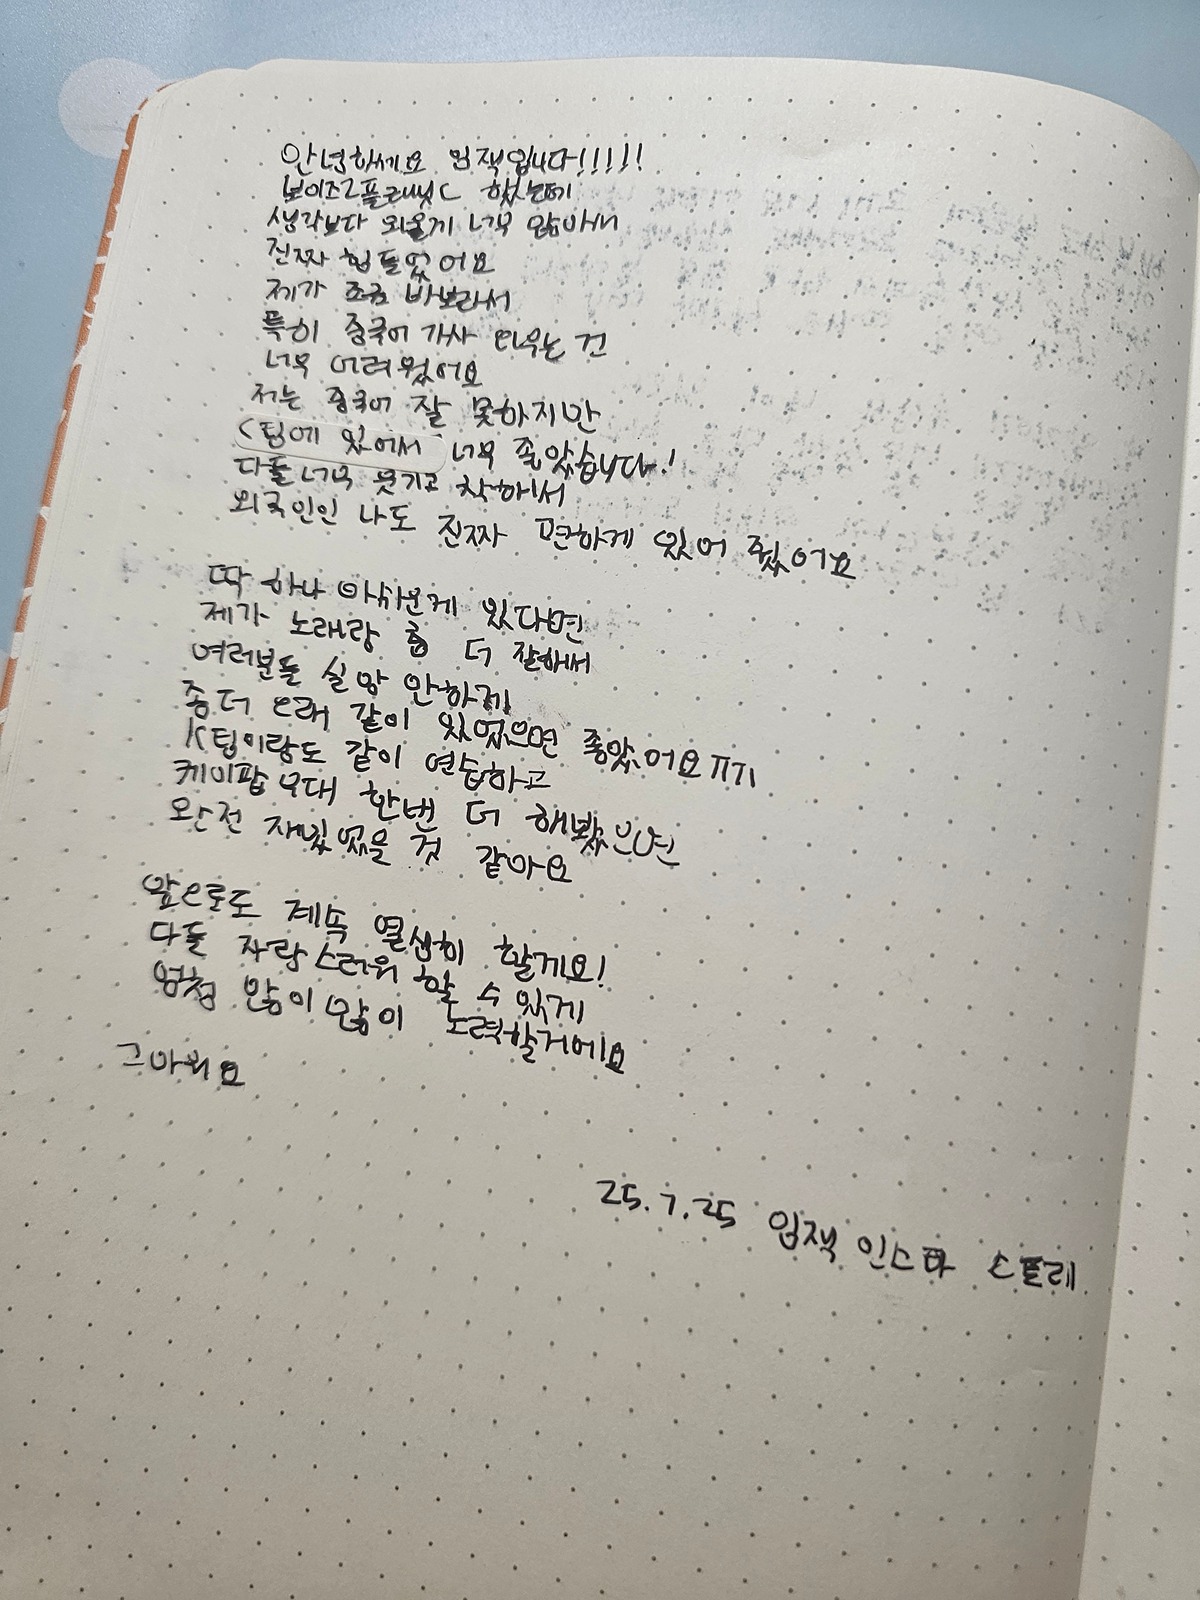 안녕하세요 임잭입니다!!!!!
보이즈2플래닛C 했는데
생각보다 외울게 너무 많아서
진짜 힘들었어요
제가 조금 바보라서
특히 중국어 가사 외우는 건
너무 어려웠어요
저는 중국어 잘 못하지만
C팀에 있어서 너무 좋았습니다!
다들 너무 웃기고 착해서
외국인인 나도 진짜 편하게 있어 줬어요
딱 하나 아쉬운게 있다면
제가 노래랑 춤 더 잘해서
여러분들 실망 안하게
좀 더 오래 같이 있었으면 좋았어요ㅠㅠ
K팀이랑도 같이 연습하고
케이팝 무대 한번 더 해봤으면
완전 재밌었을 것 같아요
앞으로도 계속 열심히 할게요!
다들 자랑스러워 할 수 있게
엄청 많이 많이 노력할거에요
고마워요
25.7.25 임잭 인스타 스토리